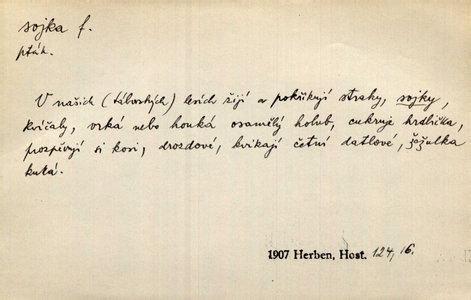 sojka f.
pták.
V našich (táborských) lesích žijí a pokřikují straky, sojky,
kvičaly, vrká nebo houká osamělý holub, cukruje hrdlička,
prozpěvují si kosi, drozdové, kvikají četní datlové, žežulka
kuká.
1907 Herben, Host. 124, 16.